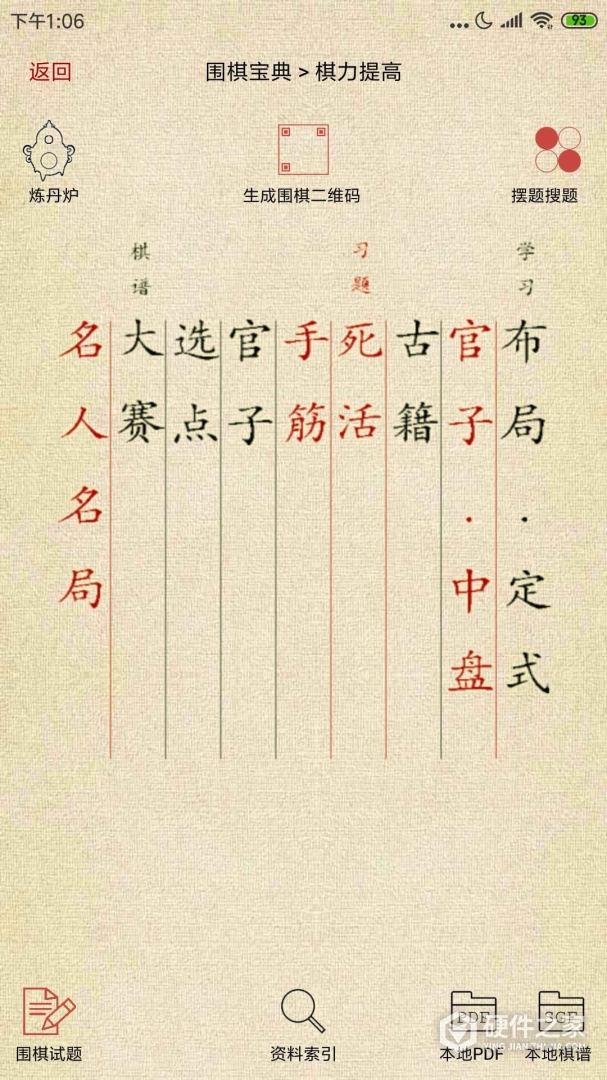 下午1:06
93
返回
围棋宝典 > 棋力提高
炼丹炉
生成围棋二维码
摆题搜题
学习
布局·定式
官子·中盘
古籍
习题
死活
手筋
官子
选点
棋谱
大赛
名人名局
围棋试题
资料索引
PDF
本地PDF
SGF
本地棋谱
硬件之家